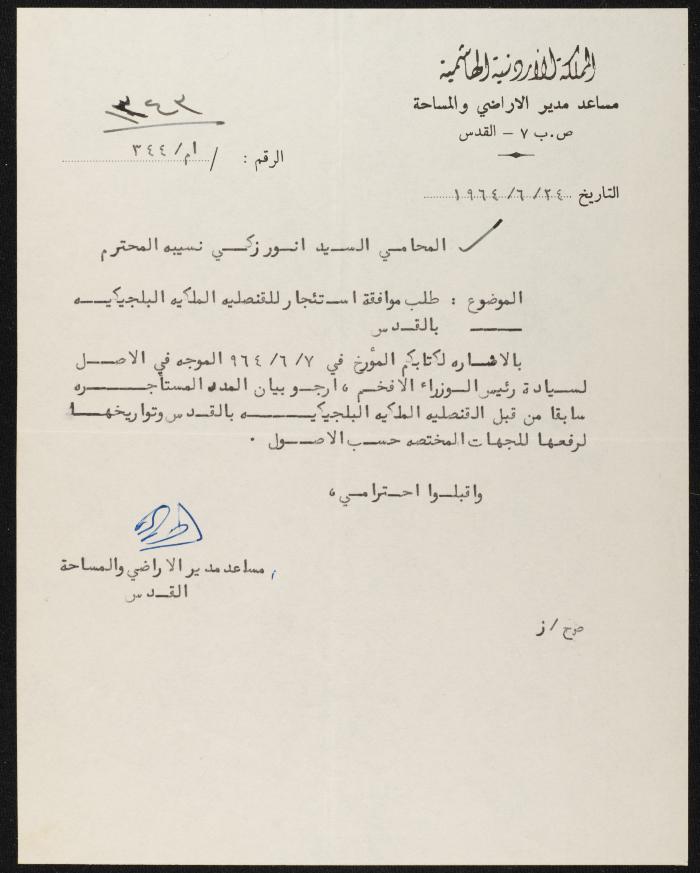 المملكة الأردنية الهاشمية
مساعد مدير الاراضي والمساحة
ص.ب ٧ - القدس
الرقم : / ام/ ٣٤٤
التاريخ ٢٤/ ٦/ ١٩٦٤
المحامي السيد انور زكي نسيبه المحترم
الموضوع : طلب موافقة استئجار للقنصليه الملكيه البلجيكيه
بالقدس
بالاشاره لكتابكم المؤرخ في ٧/ ٦/ ٩٦٤ الموجه في الاصل
لسيادة رئيس الوزراء الافخم ، ارجو بيان المدد المستأجره
سابقا من قبل القنصليه الملكيه البلجيكيه بالقدس وتواريخها
لرفعها للجهات المختصه حسب الاصول .
واقبلوا احترامي ،
مساعد مدير الاراضي والمساحة
القدس
ز /